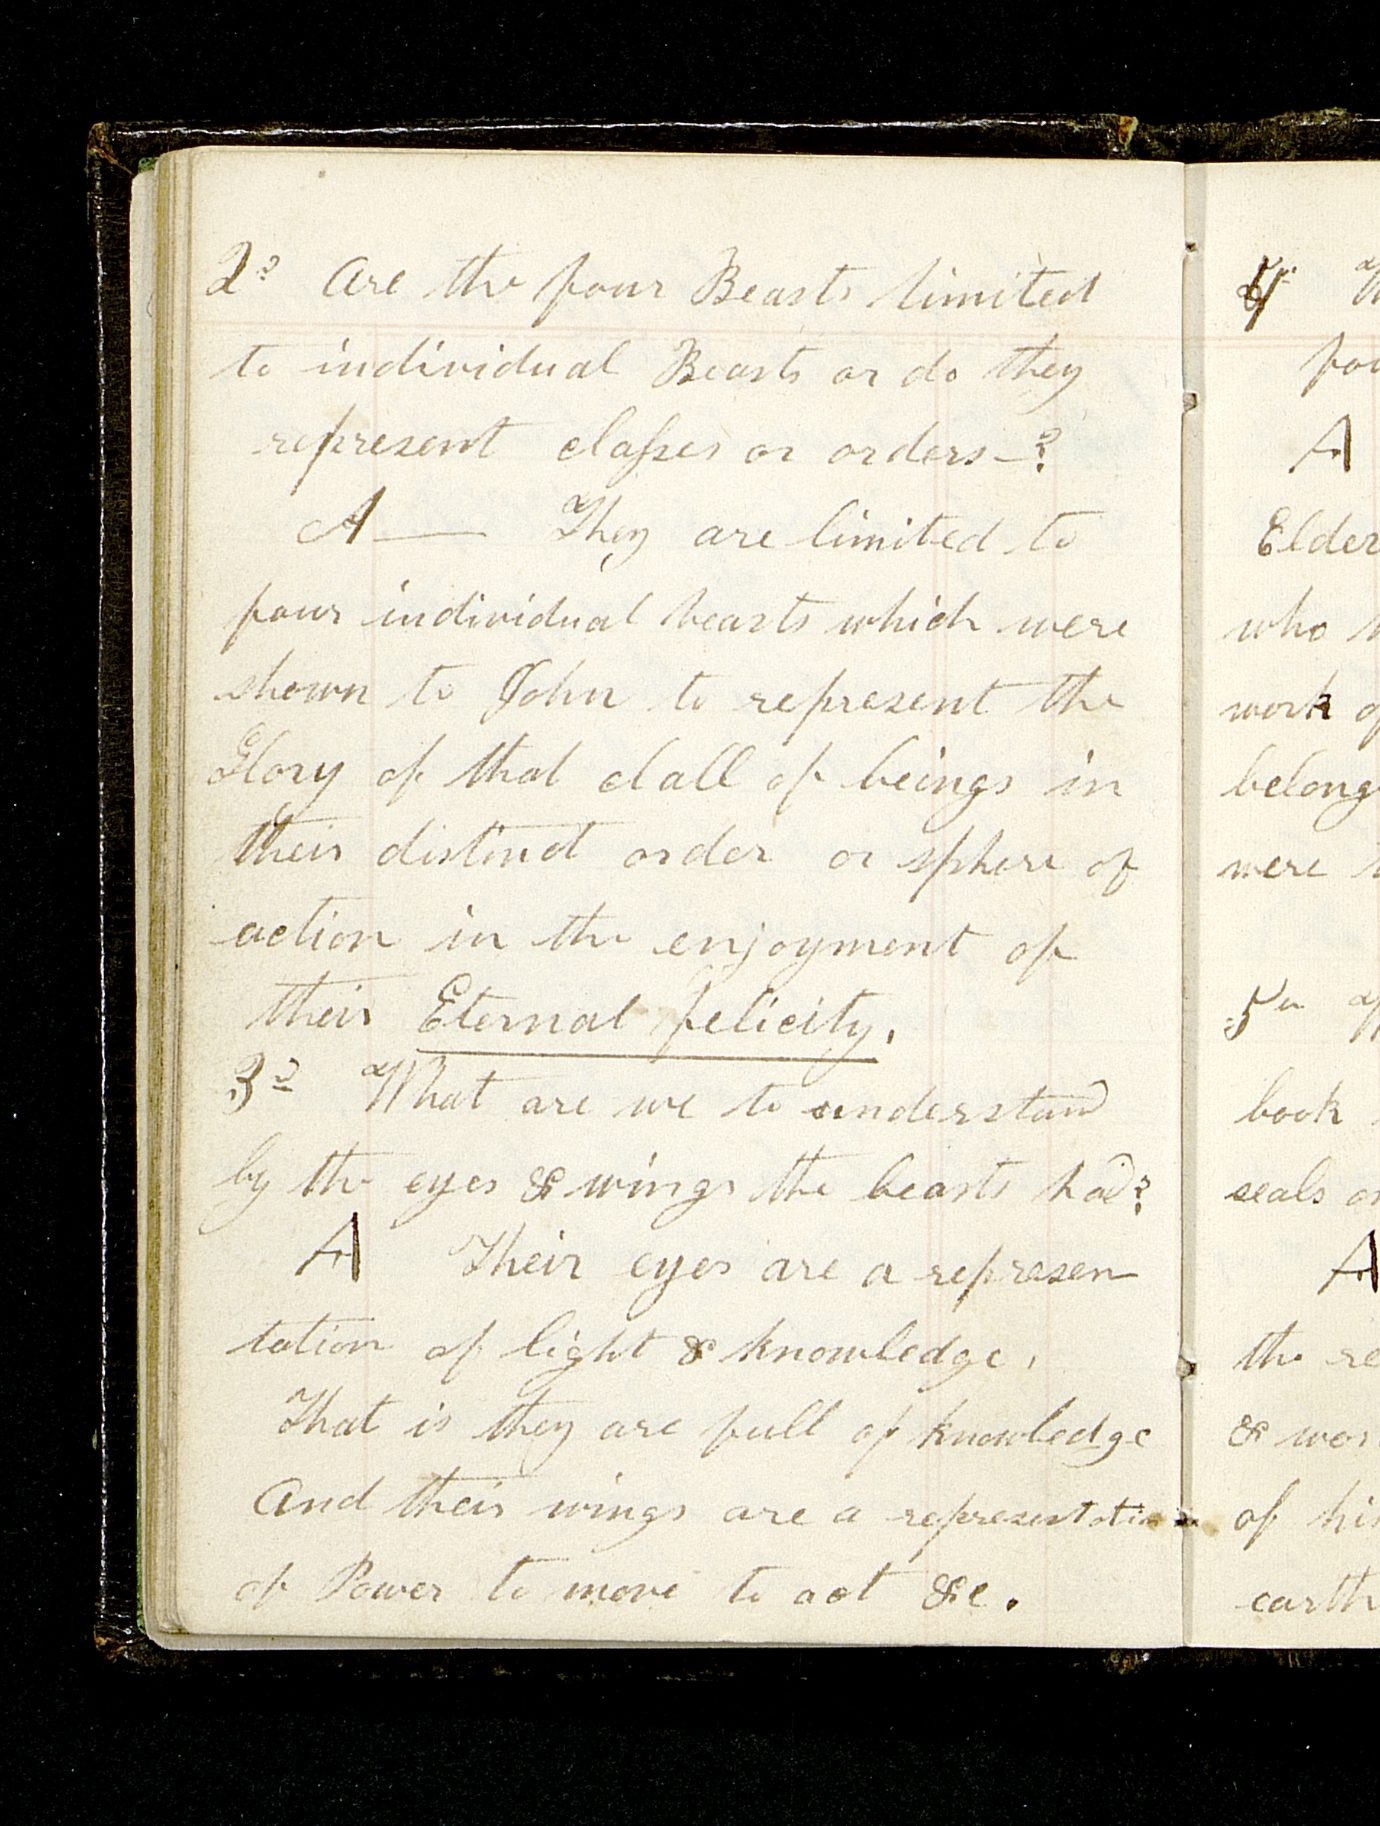 2d Are the four Beasts limited
to individual Beasts or do they
represent classes or orders—?
A — They are limited to
four individual beasts which were
shown to John to represent the
Glory of that clall of beings in
their distinct order or sphere of
action in the enjoyment of
their Eternal felicity.
3d What are we to understand
by the eyes & wings the beasts had?
A Their eyes are a represen
tation of light & knowledge,
That is they are full of knowledge
And their wings are a representation
of Power to move to act &c.
4
A
Elder
who
work
belong
were
5
book
seals
A
the
&
of
earth